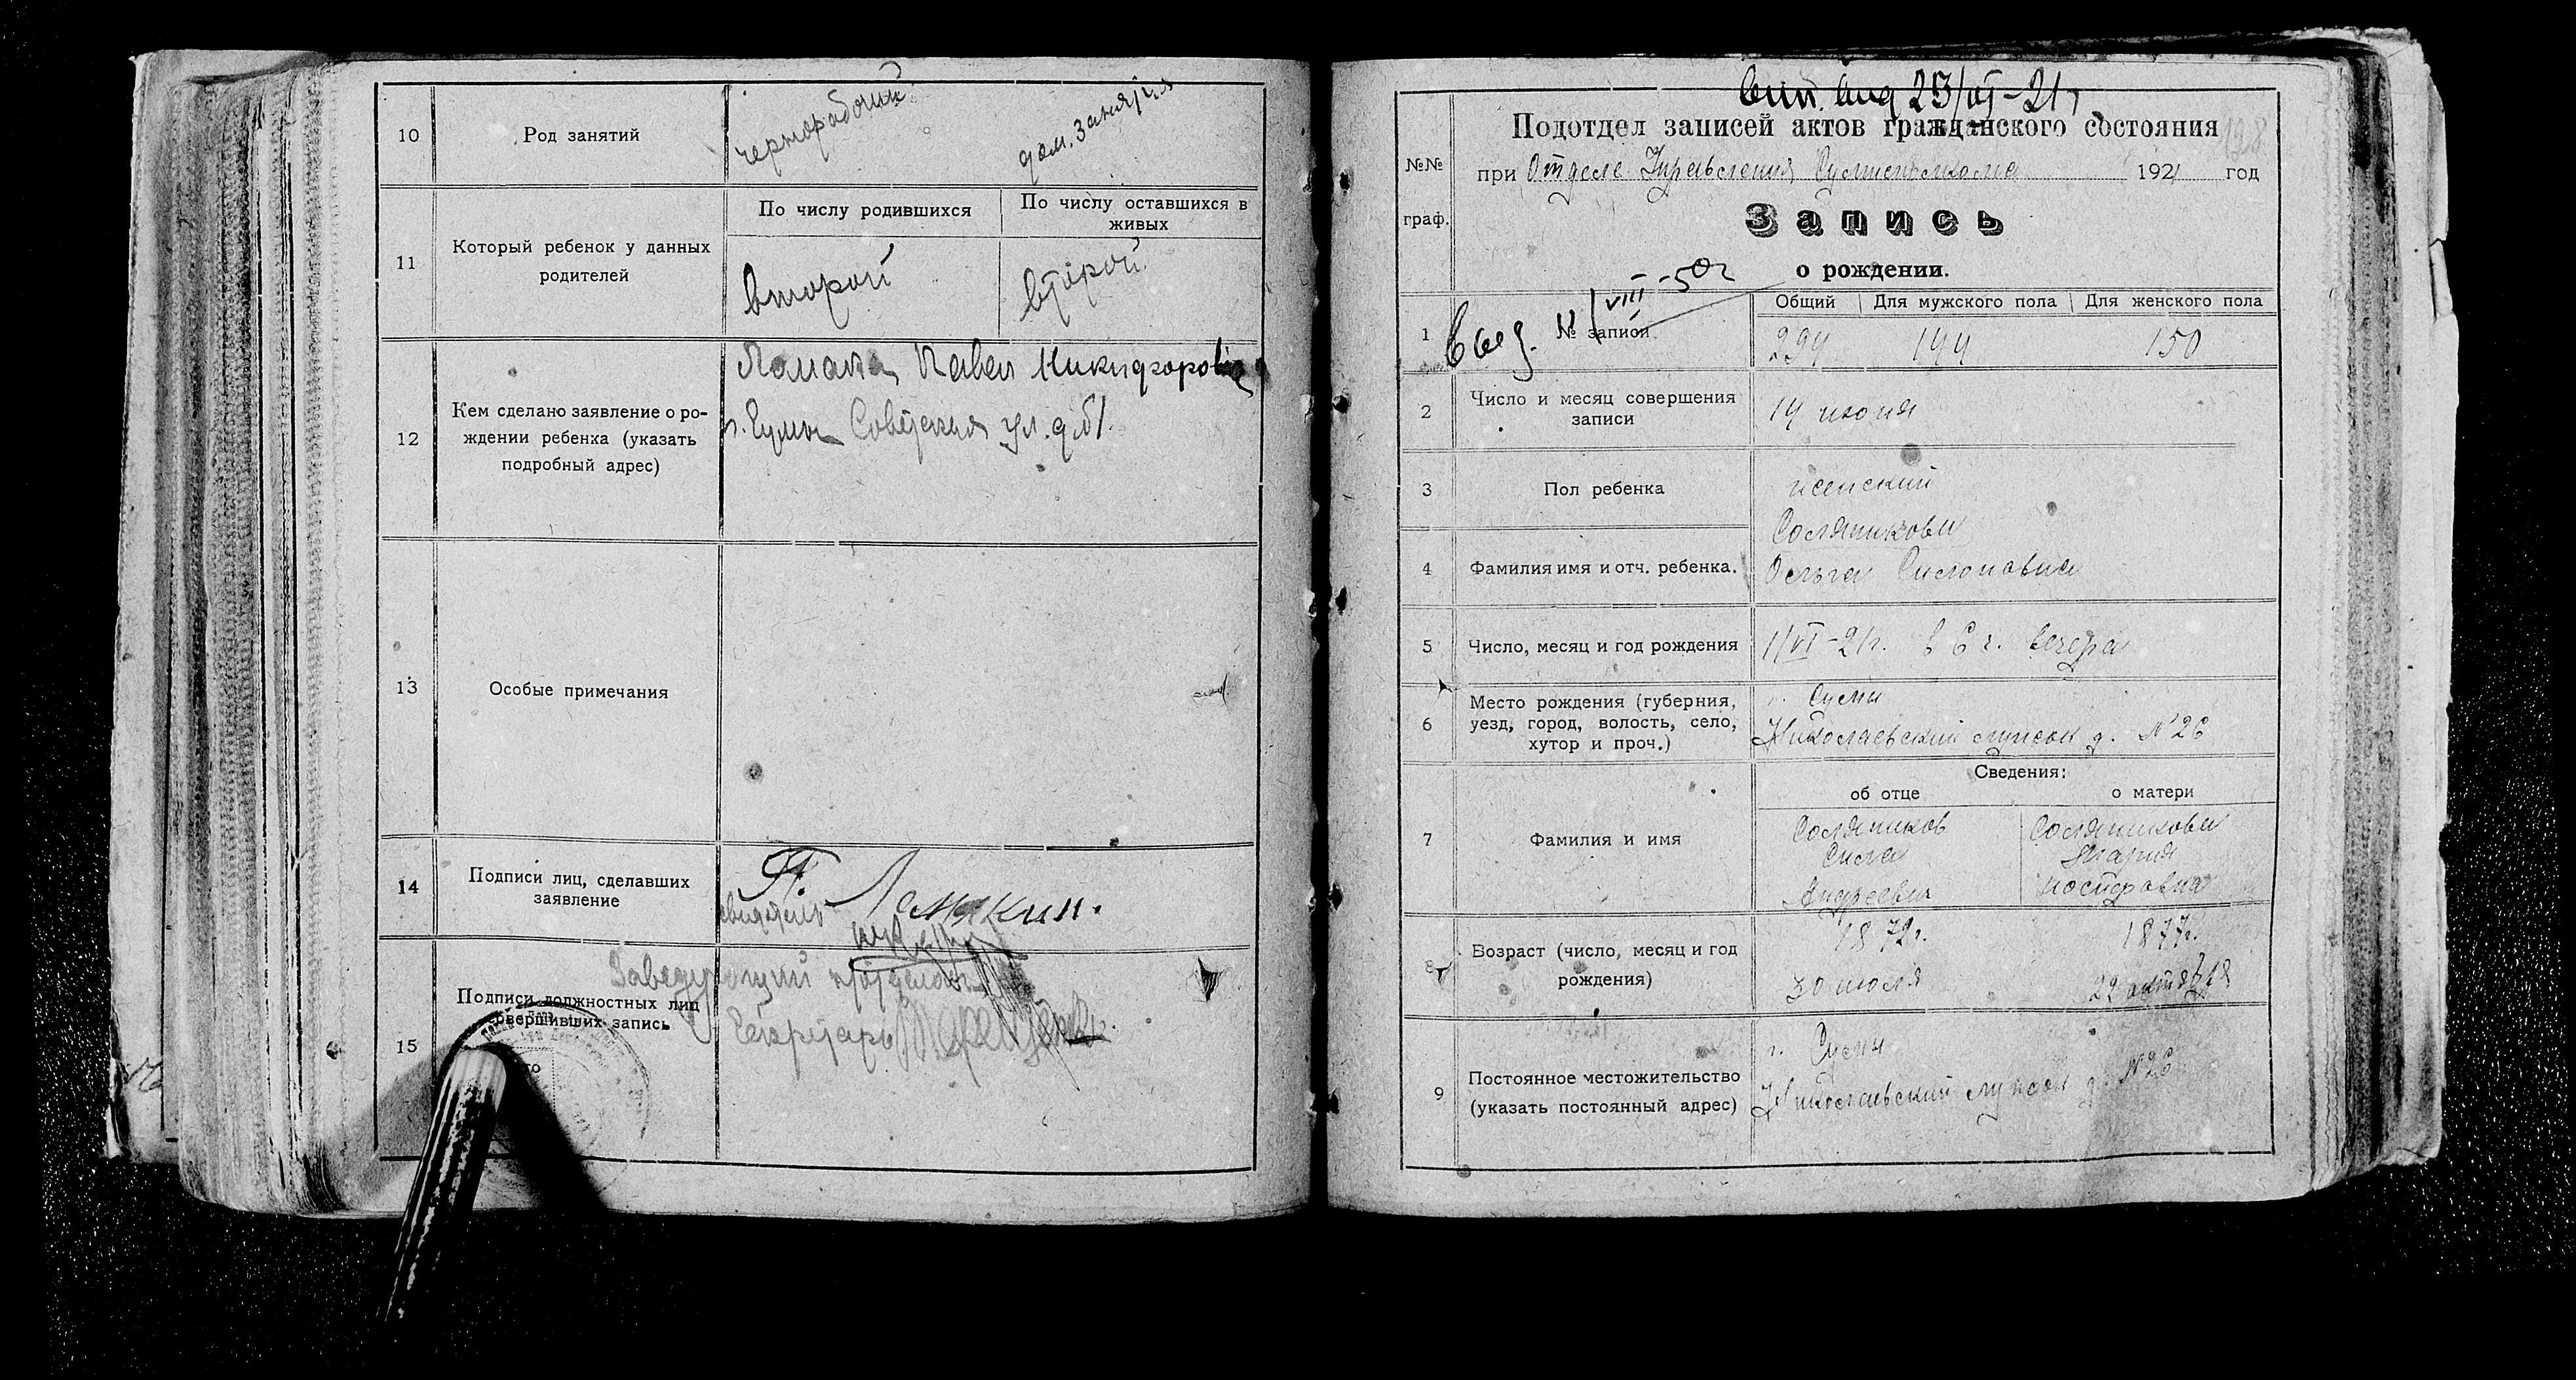 10
Род занятий
чернорабочий
дом. занятия
11
Который ребенок у данных
родителей
По числу родившихся
По числу оставшихся в
живых
второй
второй
12
Кем сделано заявление о ро-
ждении ребенка (указать
подробный адрес)
Павел Никифорович
г. Сумы Советская ул. д.
13
Особые примечания
14
Подписи лиц, сделавших
заявление
П.
15
Подписи должностных лиц
совершивших запись
Заведующий
Секретарь
25/VI-21
Подотдел записей актов гражданского состояния
128
№№
граф.
при Отделе Управления 1921 год
Запись
о рождении.
1
№ записи
Выд. 11/VIII-50г
Общий
Для мужского пола
Для женского пола
294
144
150
2
Число и месяц совершения
записи
14 июня
3
Пол ребенка
женский
4
Фамилия имя и отч. ребенка.
Солдатникова
Ольга
5
Число, месяц и год рождения
1/VI-21г. в 6 ч. вечера
6
Место рождения (губерния,
уезд, город, волость, село,
хутор и проч.)
г. Сумы
Николаевский д. №26
Сведения:
об отце
о матери
7
Фамилия и имя
Сила
Андреевич
Мария
8
Возраст (число, месяц и год
рождения)
1872г.
30 июля
1877г.
22 октября
9
Постоянное местожительство
(указать постоянный адрес)
г. Сумы
Николаевский д. №26